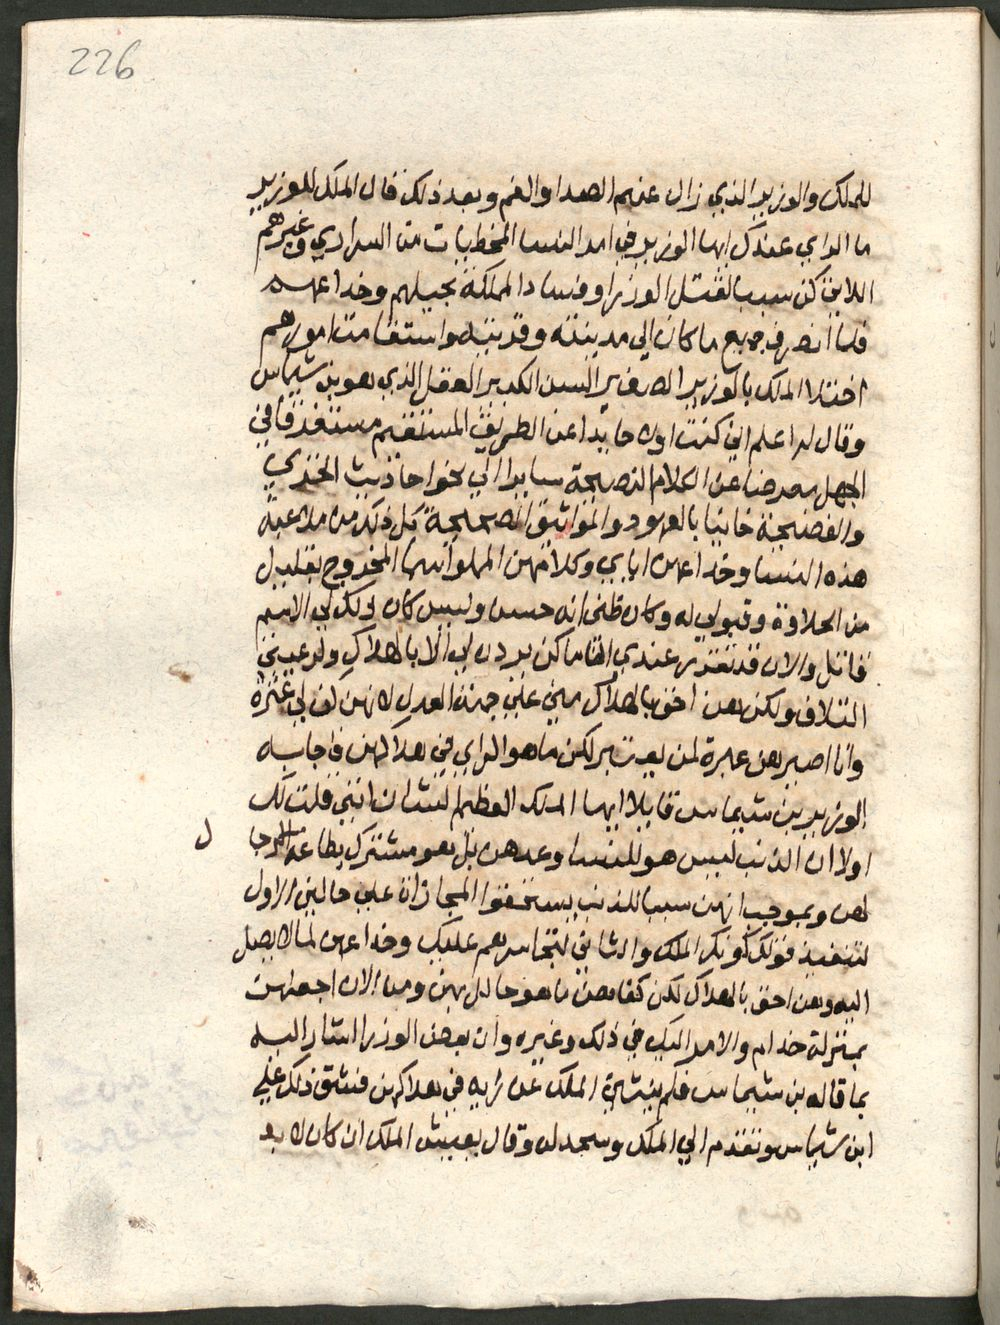 226
للملك والوزير الذي زال عنهم الصدا والغم وبعد ذلك قال الملك للوزير
ما الراي عندك ايها الوزير في امر النسا المخطيات من السراري وغيرهم
اللاتي كن سببا لقتل الوزرا وفساد المملكة بحيلهم وخداعهن
فلما انصرف جميع ما كان الي مدينته وقريته واستقامت امورهم
اختلا الملك بالوزير الصغير السن الكبير العقل الذي هو بن شيماس
وقال له اعلم اني كنت اولا حايدا عن الطريق المستقيم مستغرقا في
الجهل معرضا عن الكلام النصيحة سايرا الي نحو احاديث الخزي
والفضيحة خاينا بالعهود والمواثيق الصحيحة كل ذلك من ملاعبة
هذه النسا وخداعهن اياي وكلامهن المملو سما الممزوج بقليل
من الحلاوة وقبولي له وكان ظني انه حسن وليس كان لكن الاسم
قاتل والان قد تقرر عندي انما كن يردن لي الا بالهلاك ولرعيتي
التلاف ولكن هن احق بالهلاك مني علي جهة العدل لانهن لي عثرة
وانا اصيرهن عبرة لمن يعتبر لكن ما هو الراي في هلاكهن فاجابه
الوزير بن شيماس قايلا ايها الملك العظيم الشان انني قلت لك
اولا ان الذنب ليس هو للنسا وحدهن بل هو مشترك بطاعة الرجا
ل
لهن وبموجب انهن سببا للذنب يستحقوا المجازاة علي حالين الاول
لتنفيذ قولك كونك الملك والثاني لتجاسرهم عليك وخداعهن لما لا يصل
اليه وهن احق بالهلاك لكن كفاهن ما هو حالل بهن ومن الان اجعلهن
بمنزلة خدام والامر اليك في ذلك وغيره وان بعض الوزرا اشار اليه
بما قاله بن شيماس فلم ينثني الملك عن رايه في هلاكهن فشق ذلك علي
ابن شيماس وتقدم الي الملك وسجد له وقال يعيش الملك ان كان لا بد